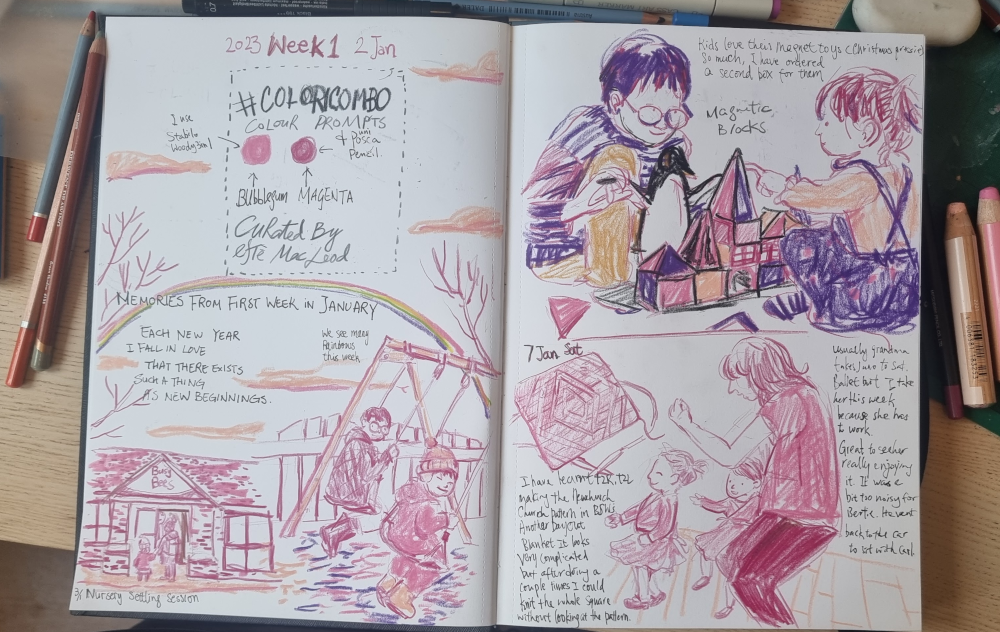 2023 Week 1 2 Jan
#COLORICOMBO
COLOUR PROMPTS
I use
Stabilo
Woody 3in1
& uni
Posca
Pencil.
Bubblegum MAGENTA
Curated By
Efte MacLeod
MEMORIES FROM FIRST WEEK IN JANUARY
EACH NEW YEAR
I FALL IN LOVE
THAT THERE EXISTS
SUCH A THING
AS NEW BEGINNINGS.
We see many
Rainbows
this week
3/1 Nursery Settling Session
Kids love their Magnet toys (Christmas
So much, I have ordered
a second box for them
Magnetic
Blocks
7 Jan Sat
I have learnt
making the
Church pattern in
Another
Blanket It looks
Very complicated
but after doing a
couple times I could
knit the whole square
without looking at the pattern.
usually Grandma
takes Juno to Sat.
Ballet but I take
her this week
because she has
to work.
Great to see her
really enjoying
it. It was a
bit too noisy for
Bertie. He went
back to the car
to sit with